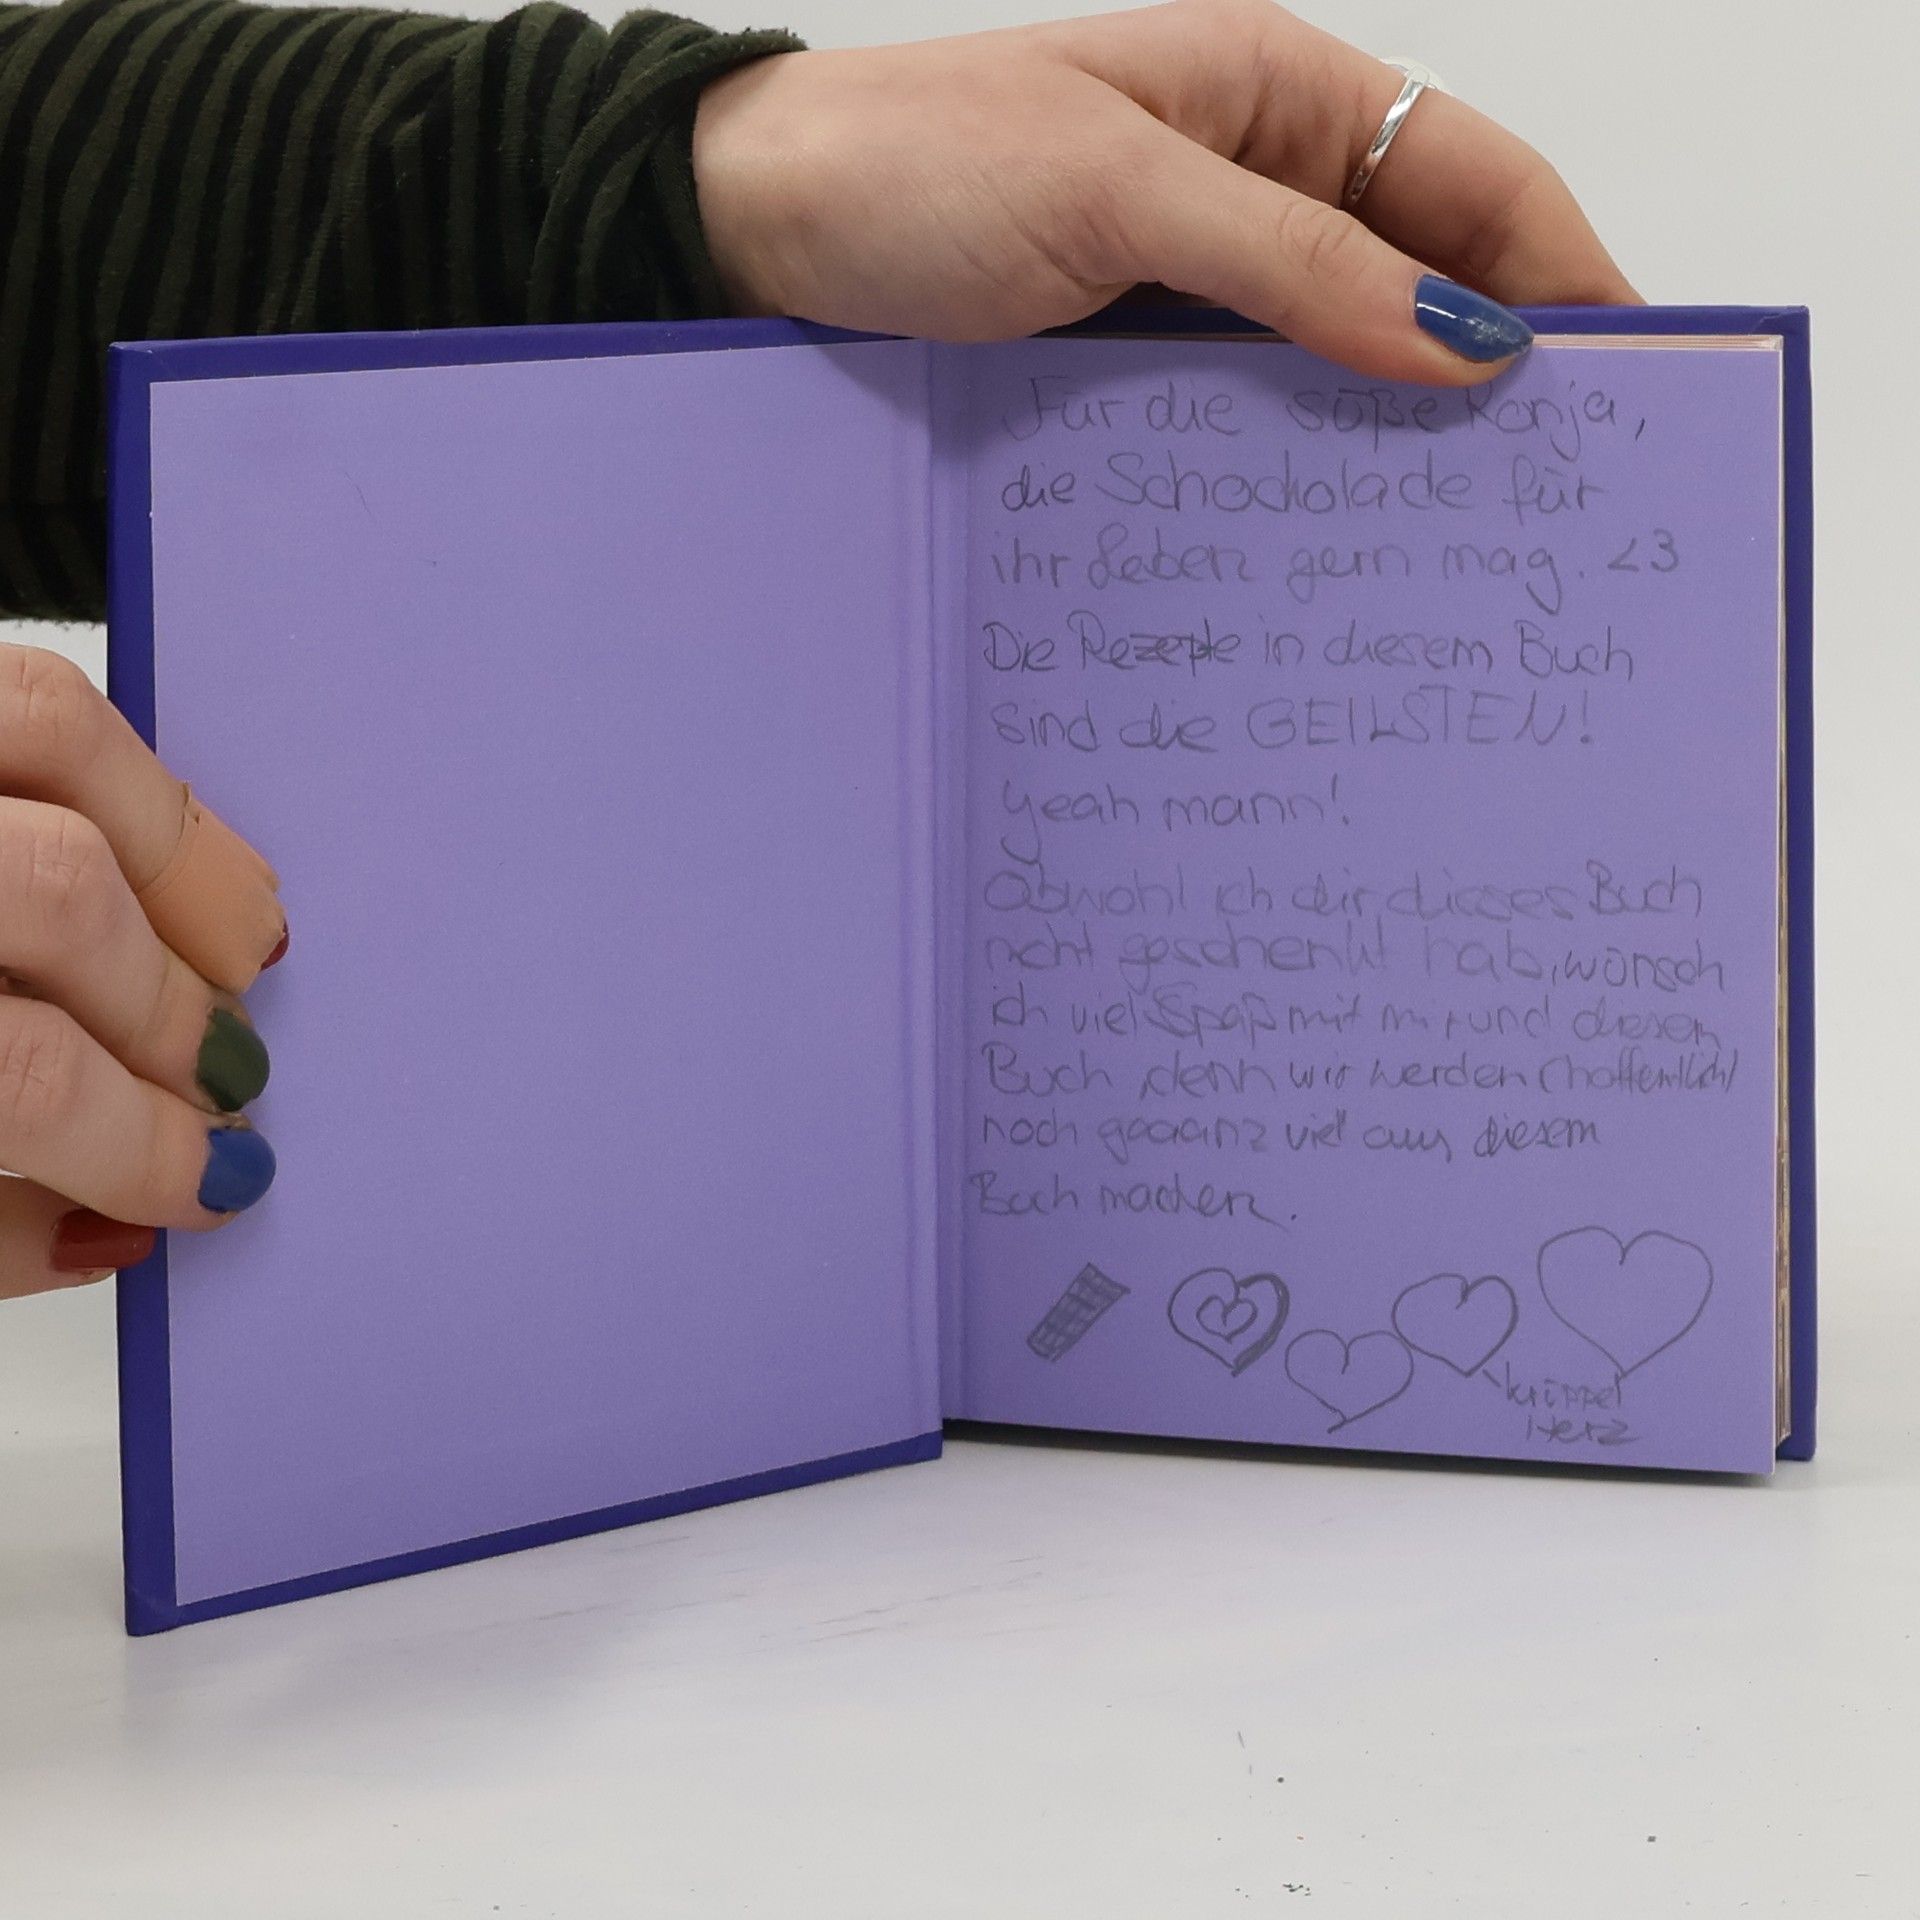 Für die süße Ronja,
die Schockolade für
ihr Leben gern mag. <3
Die Rezepte in diesem Buch
sind die GEILSTEN!
Yeah mann!
Obwohl ich dir dieses Buch
nicht geschenkt hab, wünsch
ich viel Spaß mit mir und diesem
Buch, denn wir werden (hoffentlich)
noch gaaanz viel aus diesem
Buch machen.
Krüppel
Herz